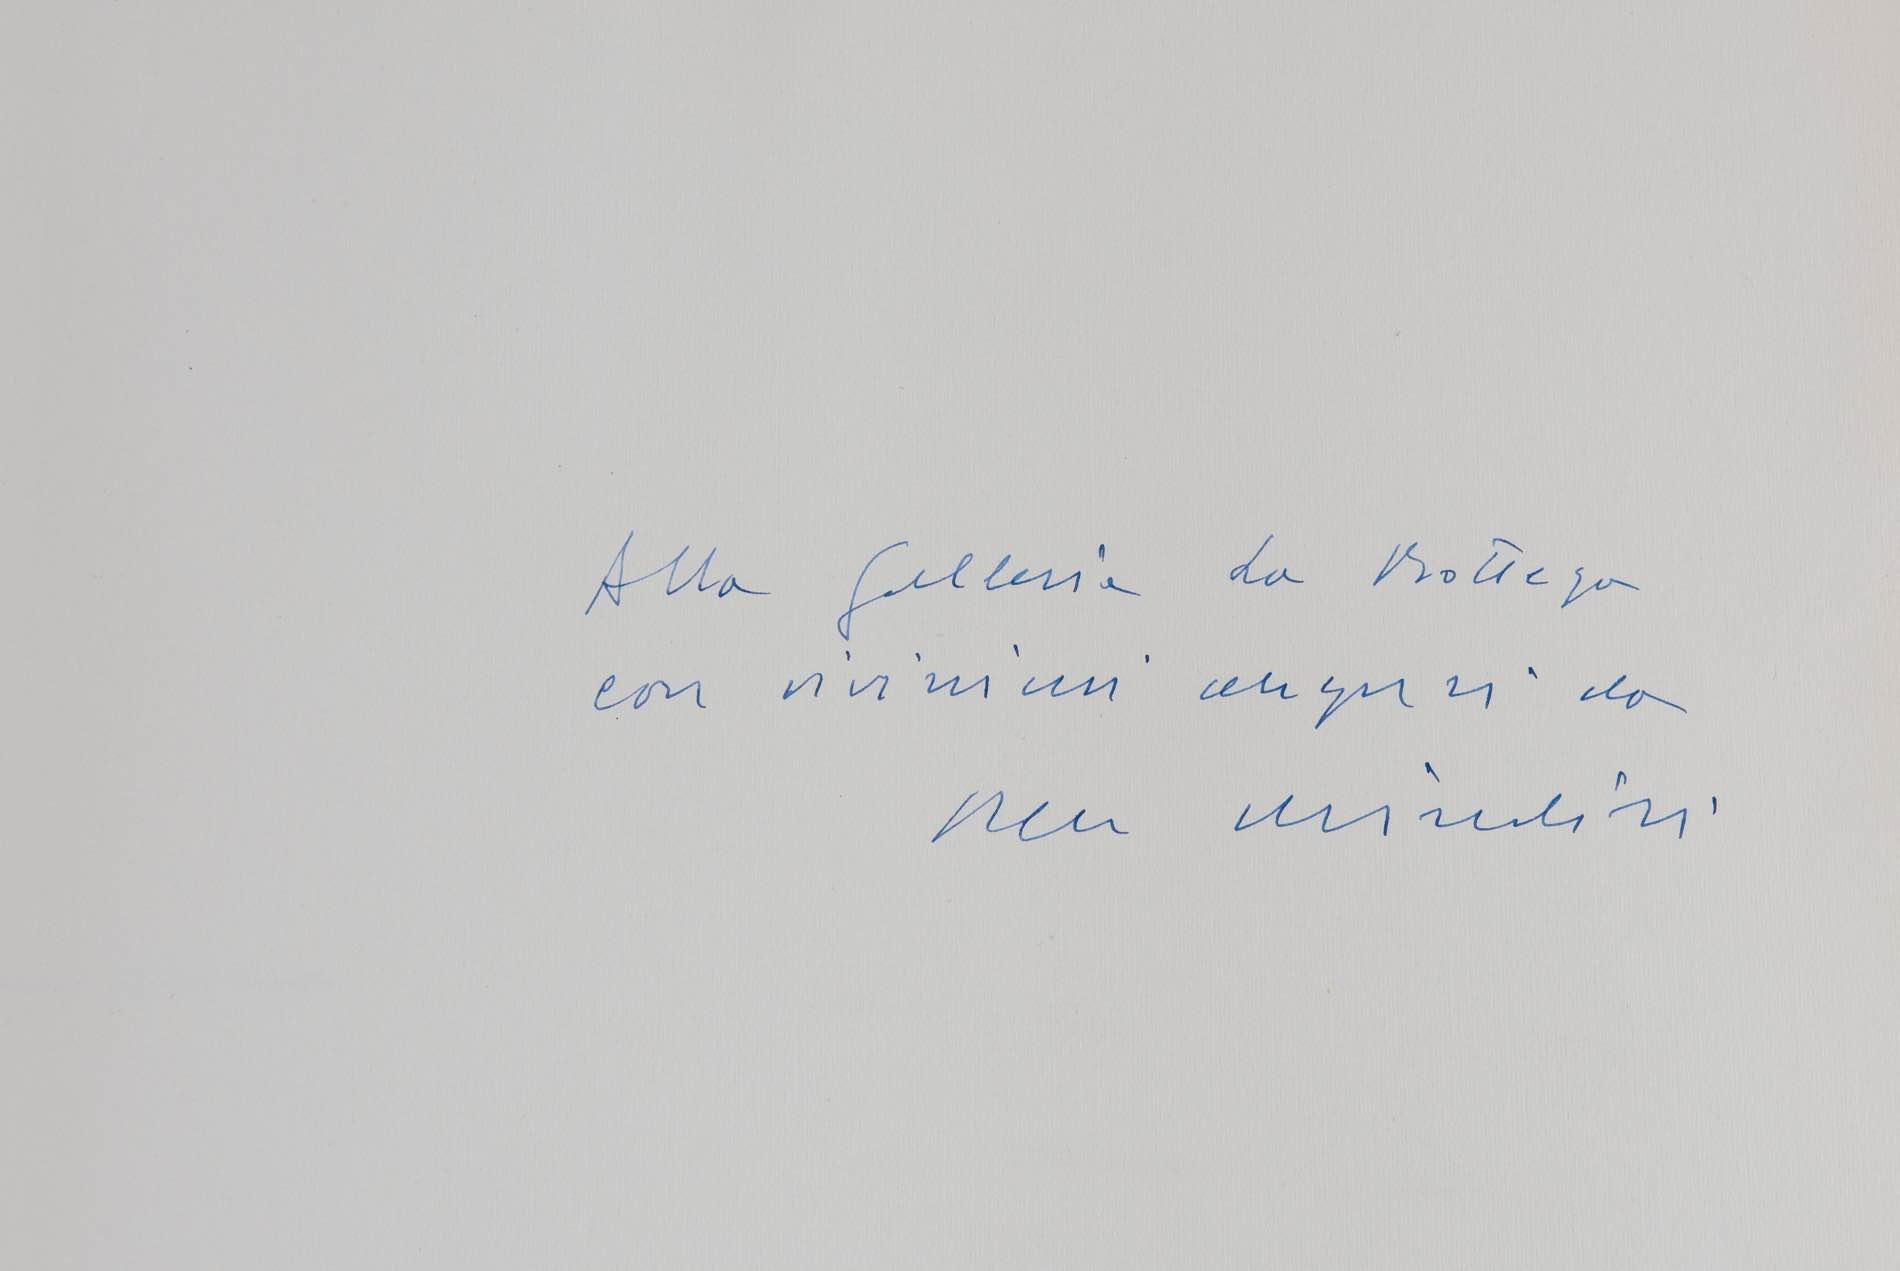 Alla Galleria La Bottega
con vivissimi auguri da